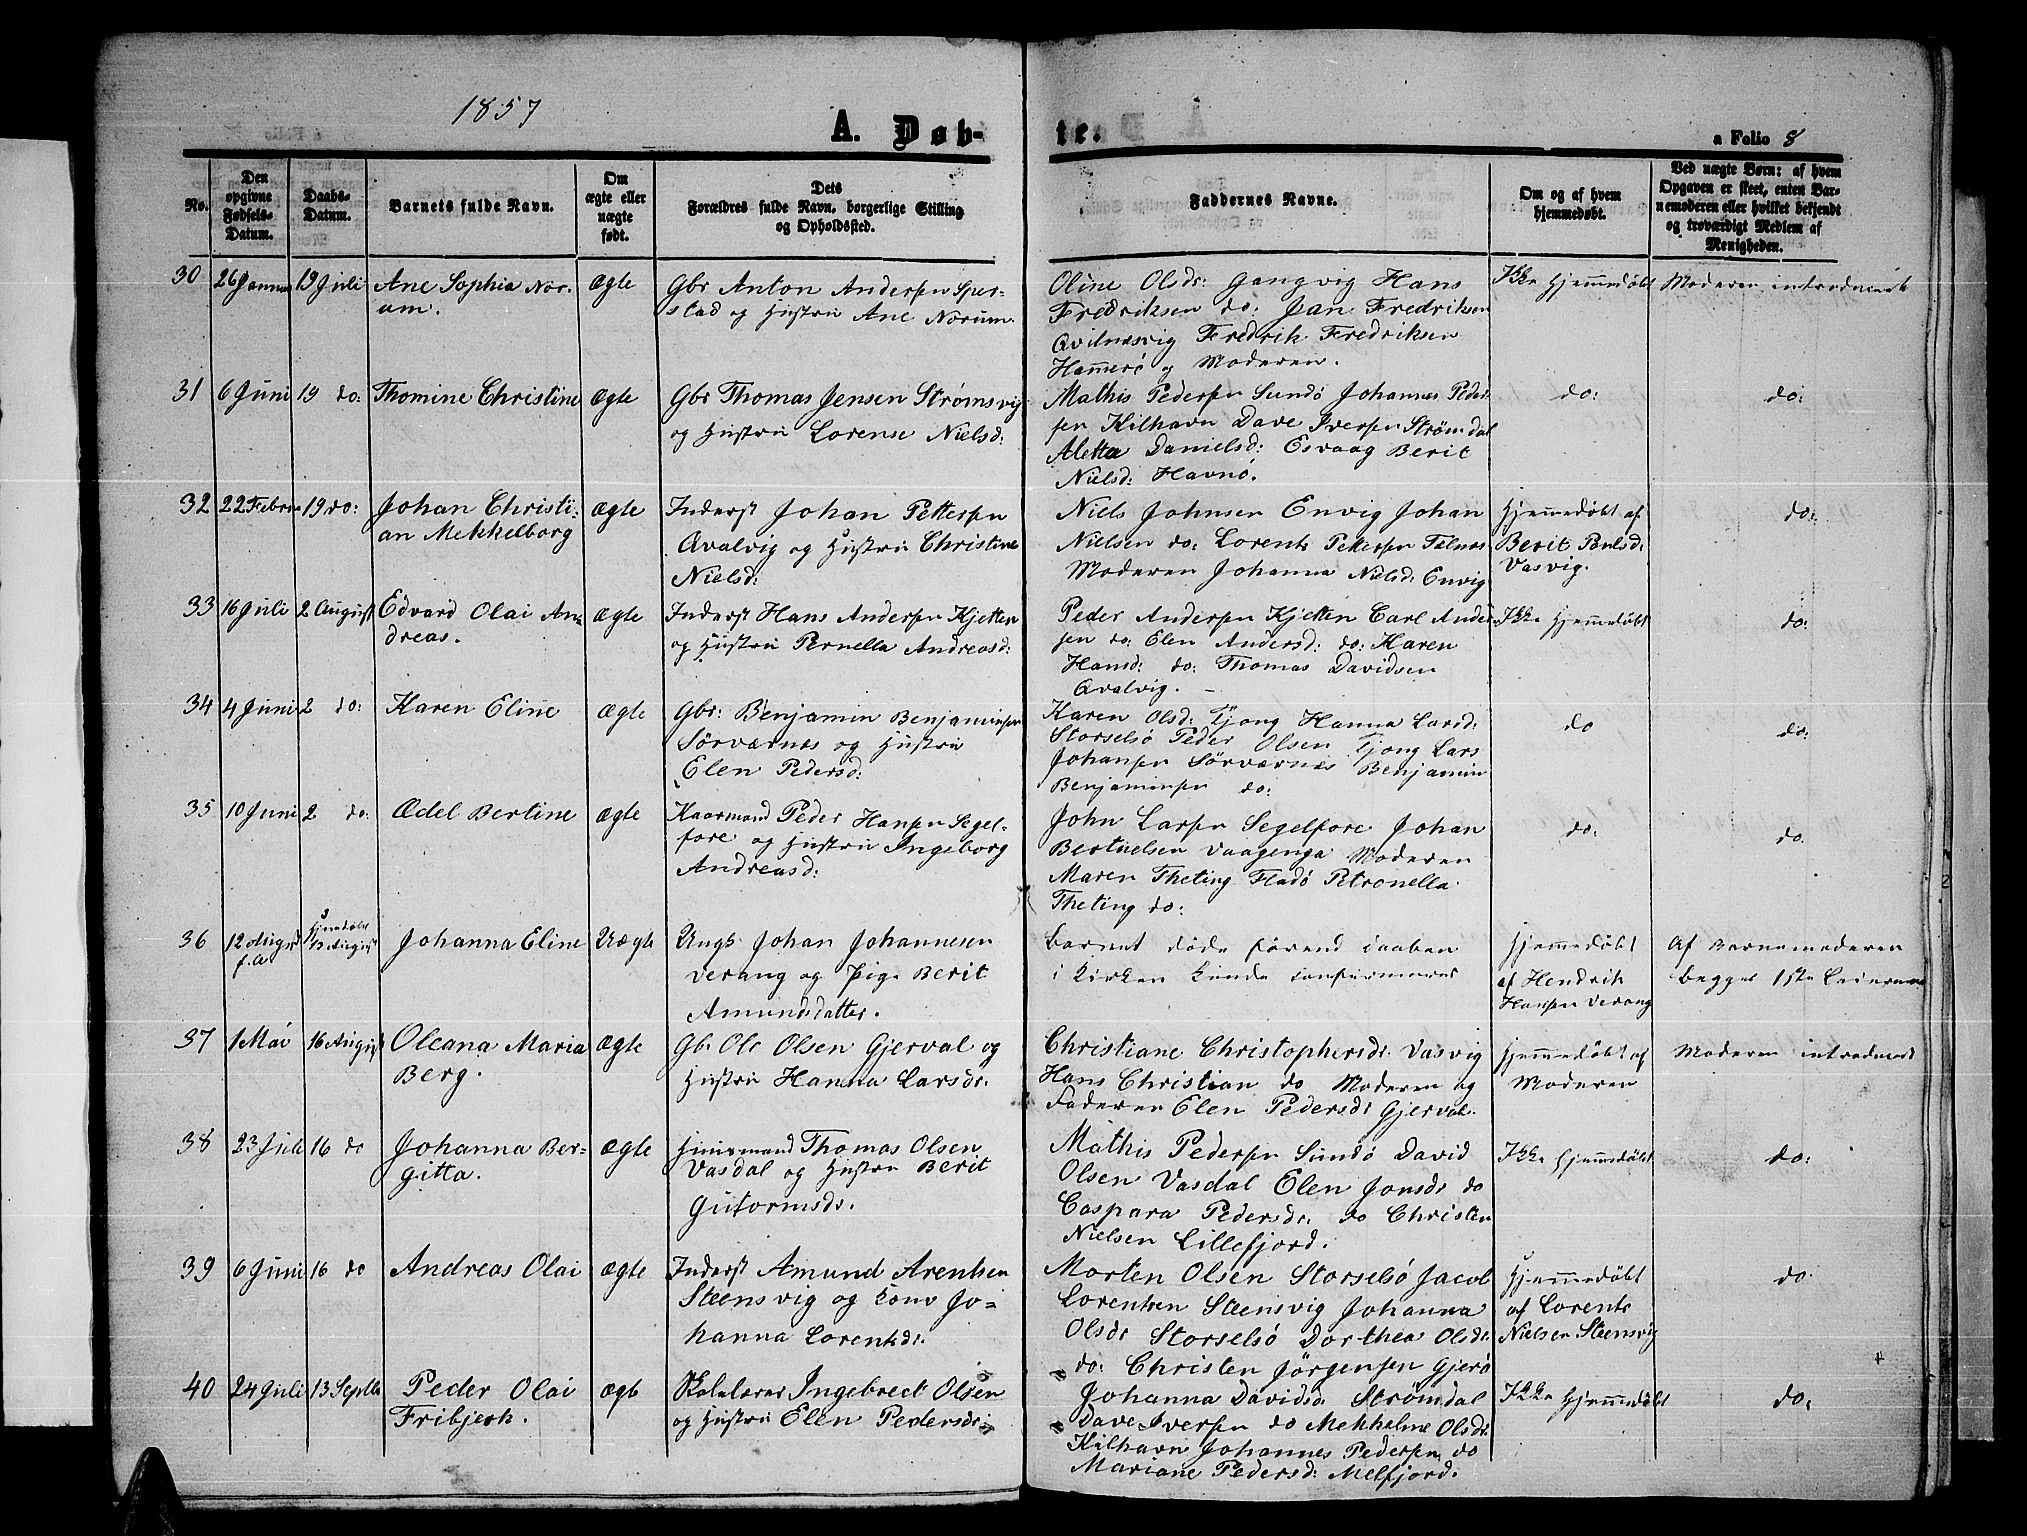 1857
A. Døb-
te.
a Folio 8
No.
Den
opgivne
Fødsels-
Datum.
Daabs-
Datum.
Barnets fulde Navn.
Om
ægte eller
uægte
født.
Dets
Forældres fulde Navn, borgerlige Stilling
og Opholdssted.
Faddernes Navne.
Om og af hvem
hjemmedøbt.
Ved uægte Børn: af hvem
Opgaven er skeet, enten Bar-
nemoderen eller hvilket bekjendt
og troværdigt Medlem af
Menigheden.
30 26 Januar 19 Juli Ane Sophia Nor-
um.
Ægte
Gbr Anton Andersen Sper-
stad og Hustru Ane Norum.
Oline Olsdr: Gangvig Hans
Fredriksen do: Jan Fredriksen
Qvilnæsvig Fredrik Fredriksen
Hammerø og Moderen.
Ikke Hjemmedøbt
Moderen introduceret
31 6 Juni 19 do: Thomine Christine Ægte
Gbr Thomas Jensen Strømsvig
og Hustru Lorense Nielsd:
Mathis Pedersen Sundø Johannes Peder-
sen Kilhavn Dave Iversen Strømdal
Aletta Danielsd: Esvaag Berit
Nielsd: Havnø.
do:
do:
32 22 Febru 19 do: Johan Christi-
an Mekkelborg
Ægte
Inderst Johan Pettersen
Qvalvig og Hustru Christine
Nielsd:
Niels Johnsen Envig Johan
Nielsen do: Lorents Pettersen Telnæs
Moderen Johanna Nielsd: Envig
Hjemmedøbt af
Berit Paulsd:
Vasvig.
do:
33 16 Juli 2 August Edvard Olai An-
dreas.
Ægte
Inderst Hans Andersen Kjetten
og Hustru Pernella Andreasd:
Peder Andersen Kjetten Carl Ander
sen do: Elen Andersd: do: Karen
Hansd: do: Thomas Davidsen
Qvalvig.
Ikke Hjemmedøbt
do:
34 4 Juni 2 do: Karen Eline Ægte
Gbr: Benjamin Benjaminsen
Sørværnæs og Hustru
Elen Pedersd:
Karen Olsd: Tjong Hanna Larsd:
Storselsø Peder Olsen Tjong Lars
Johansen Sørværnæs Benjamin
Benjaminsen do:
do
do:
35 10 Juni 2 do: Ædel Bertine Ægte
Kaarmand Peder Hansen Segel-
fore og Hustru Ingeborg
Andreasd:
John Larsen Segelfore Johan
Bertuelsen Vaagenga Moderen
Maren Theting Fladø Petronella
Theting do:
do:
do.
36 12 August
f.A
Hjemdøbt
13 August
Johanna Eline Uægte
Ungk Johan Johannesen
Verang og Pige Berit
Amundsdatter.
Barnet døde førend Daaben
i Kirken kunde confirmeres
Hjemmedøbt
af Hendrik
Hansen Verang
Af Barnemoderen
begges 1ste Leiermaal
37 1 Mai 16 August Oleana Maria
Berg.
Ægte
Gb. Ole Olsen Gjerval og
Hustru Hanna Larsdr.
Christiane Christophersdr: Vasvig
Hans Christian do Moderen og
Faderen Elen Pedersdr Gjerval.
Hjemmedøbt af
Moderen
Moderen introduceret
38 23 Juli 16 do Johanna Ber-
gitta.
Ægte
Huusmand Thomas Olsen
Vasdal og Hustru Berit
Gutormsdr.
Mathis Pedersen Sundø David
Olsen Vasdal Elen Jonsdr do
Caspara Pedersdr. do Christen
Nielsen Lillefjord.
Ikke Hjemmedøbt
do:
39 6 Juni 16 do Andreas Olai Ægte
Inderst Amund Arentsen
Steensvig og Kone Jo-
hanna Lorentsdr.
Morten Olsen Storselsø Jacob
Lorentsen Steensvig Johanna
Olsdr Storselsø Dorthea Olsdr.
do: Christen Jørgensen Gjerø
Hjemmedøbt
af Lorents
Nielsen Steensvig
do.
40 24 Juli 13 Septbr Peder Olai
Fribjerh.
Ægte
Skolelærer Ingebrect Olsen
og Hustru Elen Pedersdr:
Johanna Davidsd: Strømdal
Dave Iversen do Mekkeline Olsdr.
Kilhavn Johannes Pedersen do
Mariane Pedersd: Melfjord.
Ikke Hjemmedøbt
do: